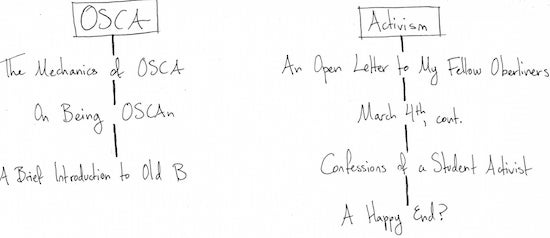 OSCA
The Mechanics of OSCA
On Being OSCAn
A Brief Introduction to Old B
Activism
An Open Letter to My Fellow Oberliners
March 4th, cont.
Confessions of a Student Activist
A Happy End?